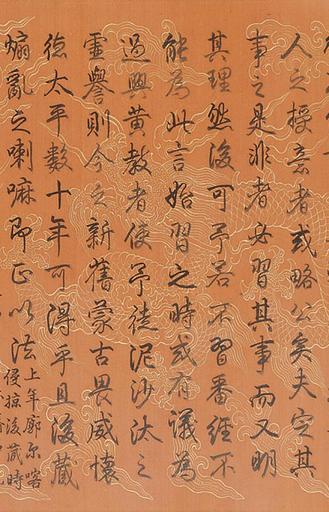 人之授意者或略公矣夫定其
事之是非者必習其事而又明
其理然後可予若不習番經不
能為此言始習之時或有議為
過興黃教者使予徒泥沙汰之
虛譽則今之新舊蒙古畏威懷
德太平數十年可得乎且後藏
煽亂之喇嘛即正以法
上年廓尔喀
侵掠後藏時